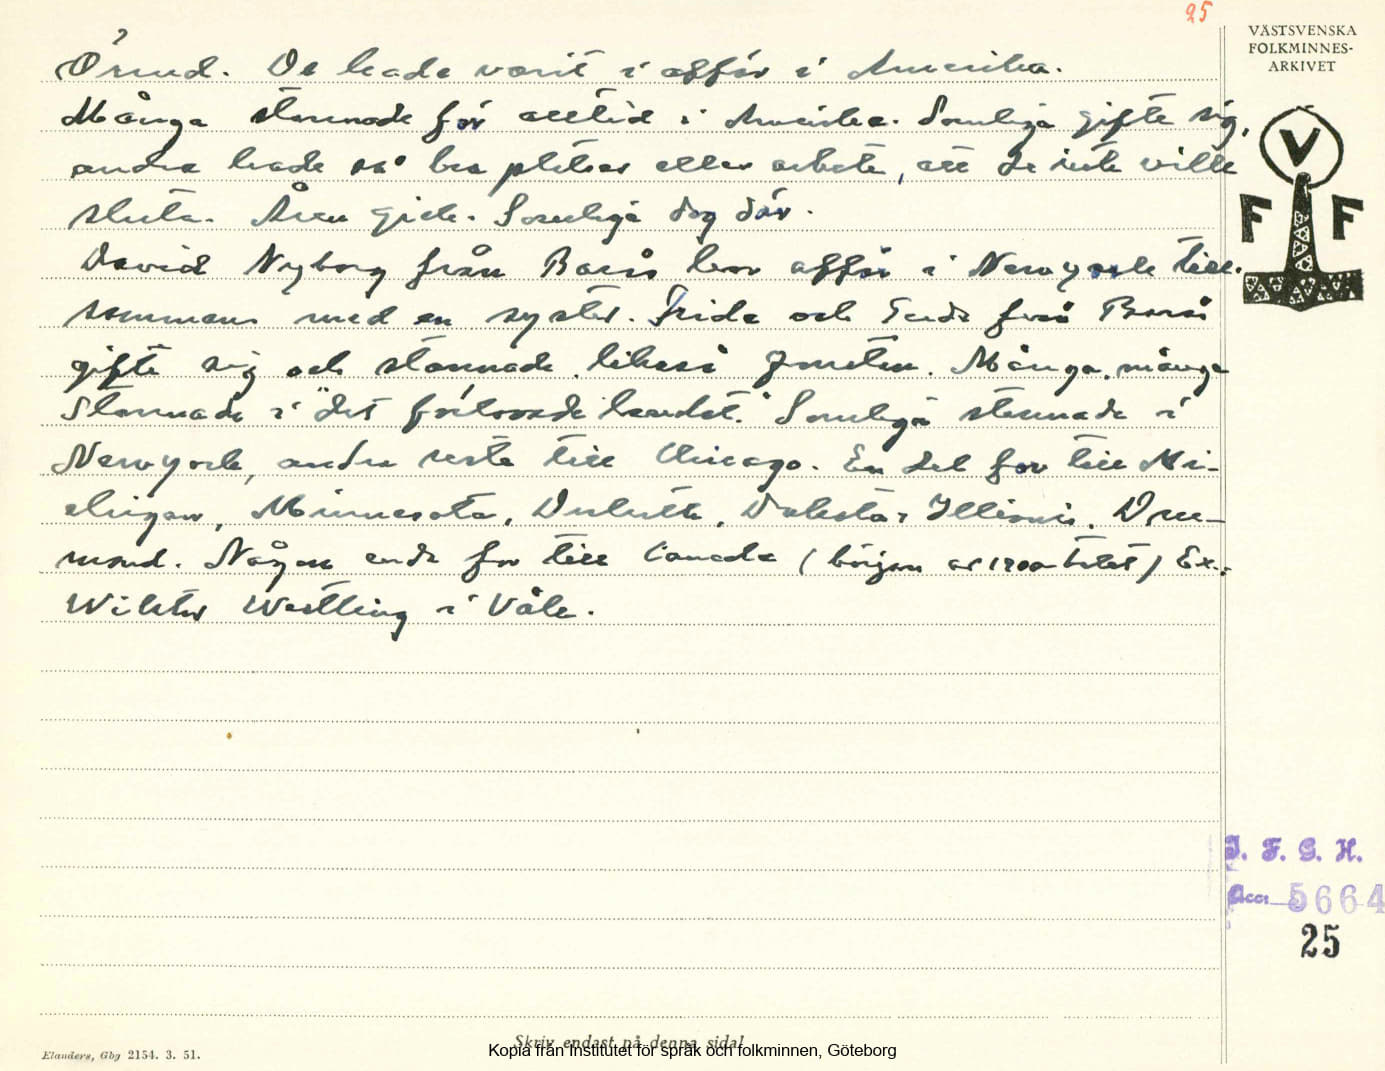 25
VÄSTSVENSKA
FOLKMINNES-
ARKIVET
V
F F
Örud. De hade varit i affär i Amerika.
Många stannade för alltid i Amerika. Somliga gifte sig,
andra hade så bra platser eller arbete, att de inte ville
sluta. Åren gick. Somliga dog där.
David Nyborg från Borås har affär i Newyork till-
sammans med en syster. Frida och från Borås
gifte sig och stannade, likaså Jonsten. Många, många
stannade i "det förlovade landet." Somliga stannade i
Newyork, andra reste till Chicago. En del for till Mi-
chigan, Minnesota, Duluth, Dakota, Illionis, Dru-
mond. Någon enda for till Canada (början av 1900-talet) Ex.:
Westling i Våle.
I. F. G. H.
Acc. 5664
25
Skriv endast på denna sida!
Kopia från Institutet för språk och folkminnen, Göteborg
Elanders, Gbg 2154. 3. 51.